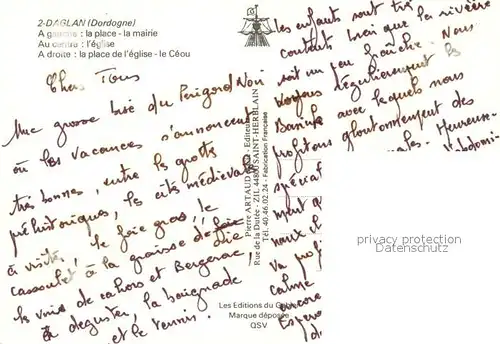 2-DAGLAN (Dordogne)
A gauche : la place - la mairie
Au centre : l'église
A droite : la place de l'église - le Céou
Chers Tous
Une grosse bise du Périgord Noir
où les vacances s'annoncent
très bonnes, entre les grottes
préhistoriques, les cités médiévales
à visiter, le foie gras !! le
cassoulet à la graisse de
les vins de cahors et Bergerac,
à déguster, la baignade
et le tennis.
Pierre ARTAUD - Editeur
Rue de la Dutée - Z.I.L. 44800 SAINT-HERBLAIN
Tél. 40.46.02.24 - Fabrication Française
les enfants sont très
contents bien que la rivière
soit un peu fraîche. Nous
voyons régulièrement les
avec lesquels nous
profitons gloutonnement des
Heureuse-
calme
encore
privacy protection
Datenschutz
Les Editions du
Marque déposée
QSV